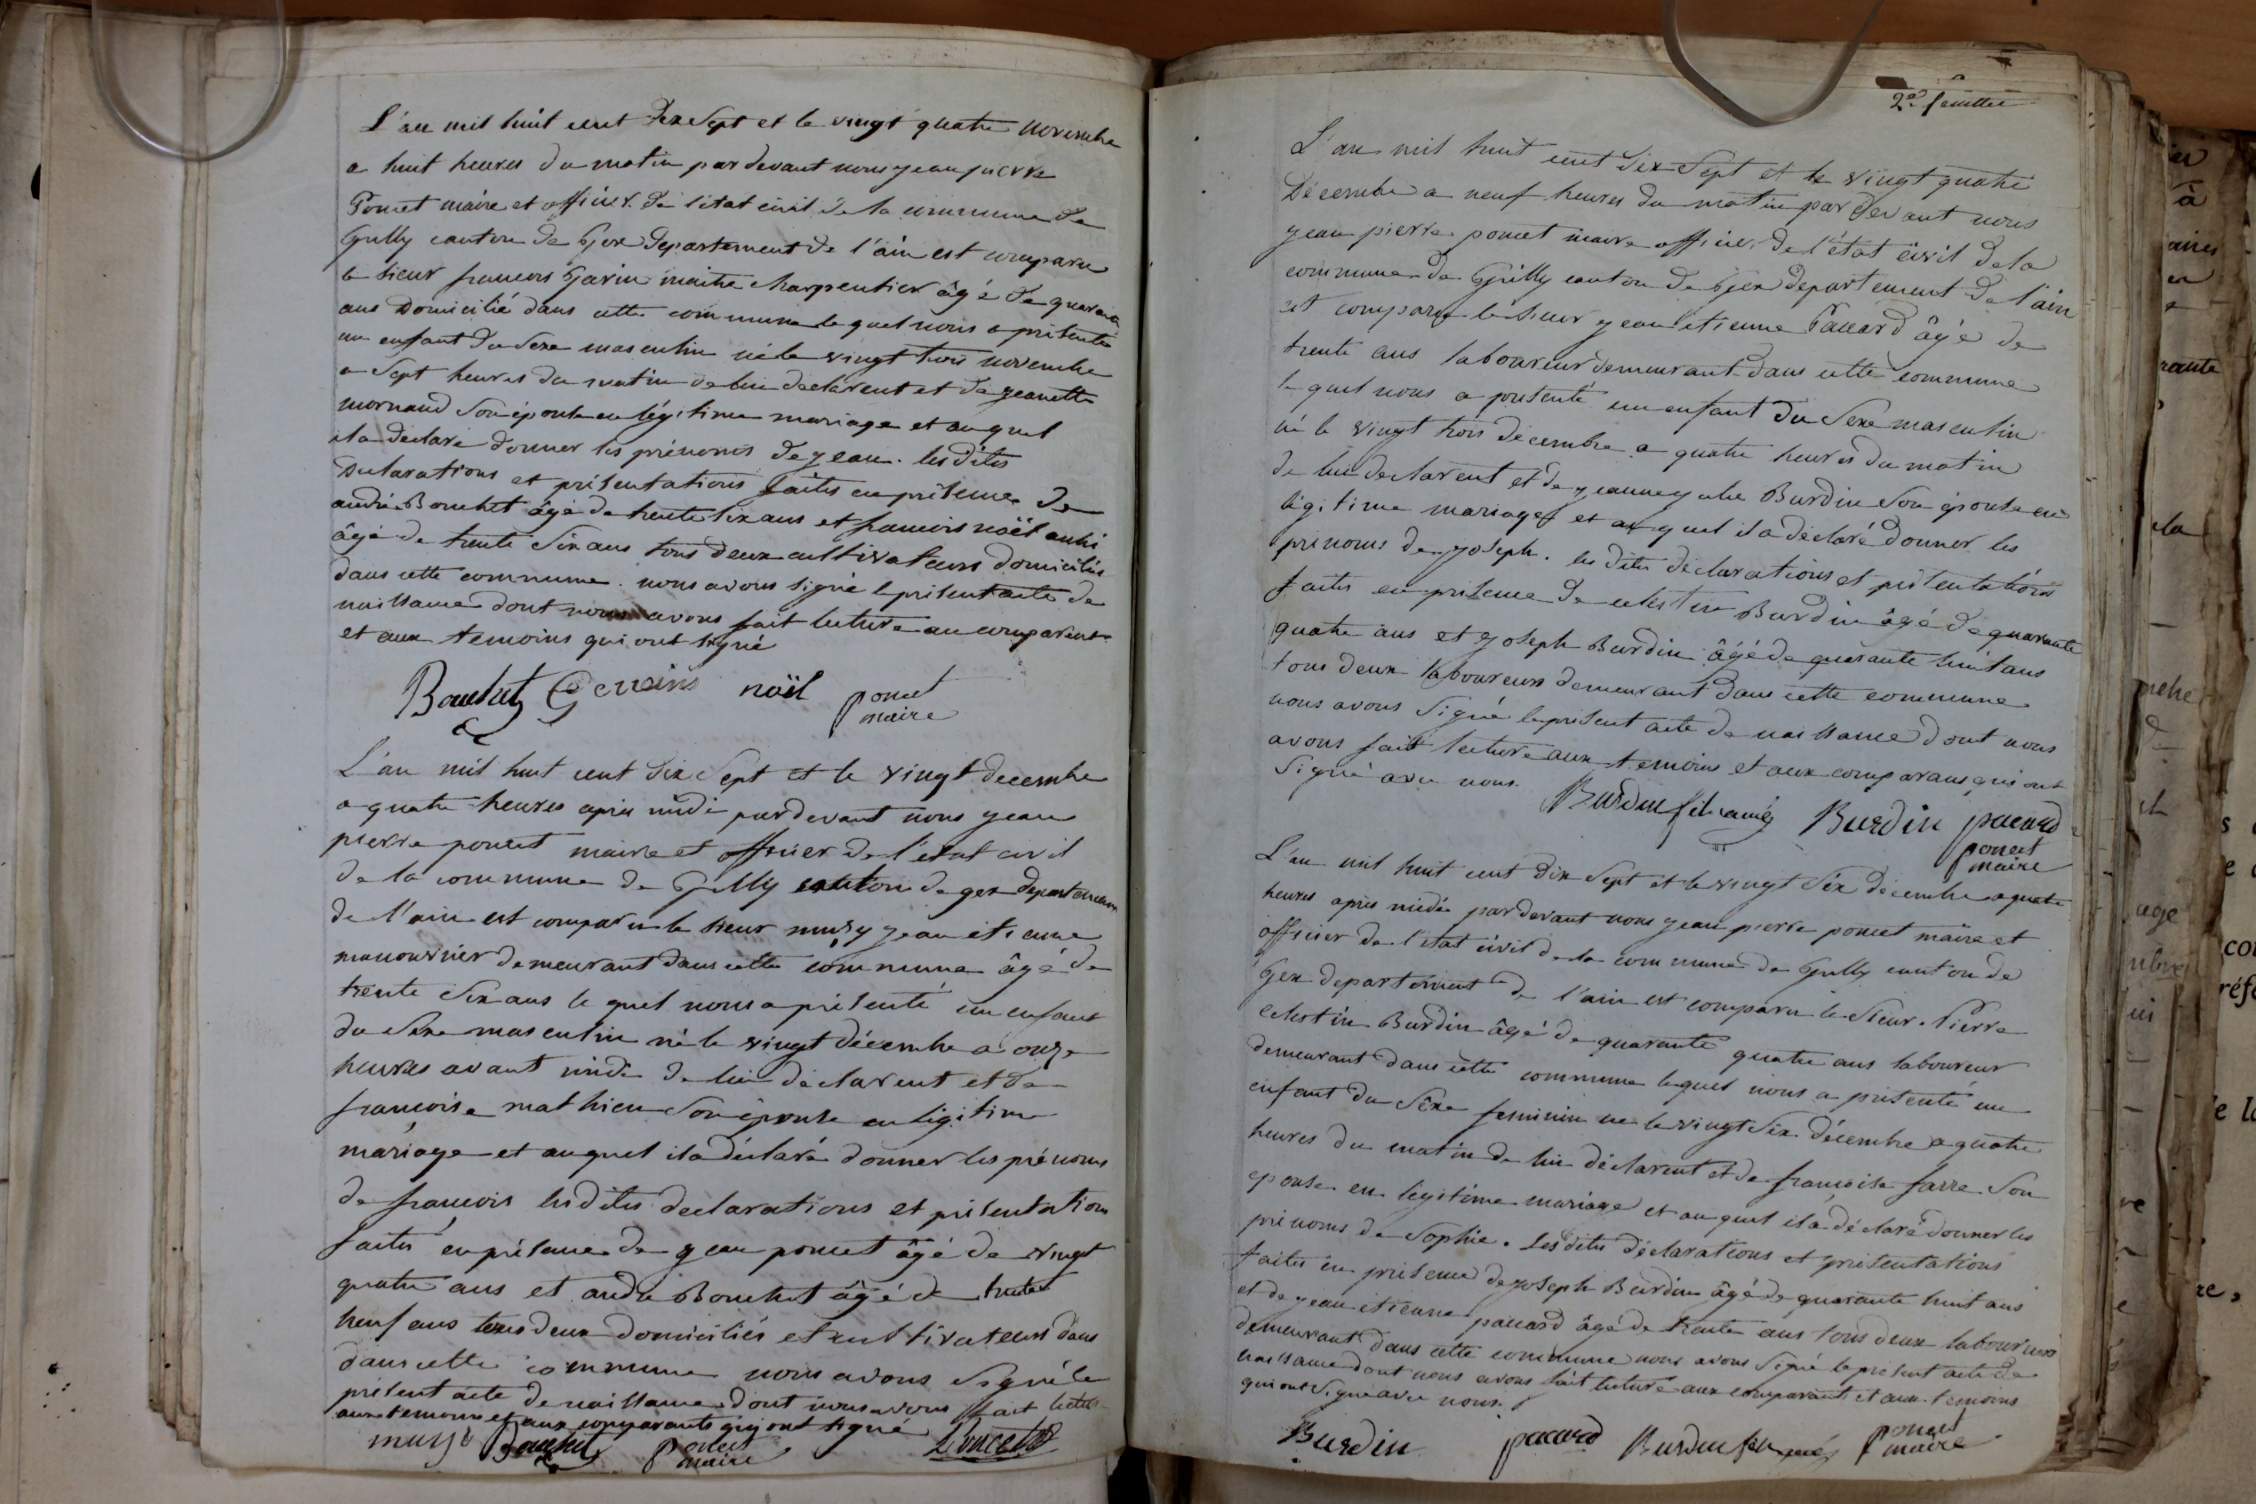 L'an mil huit cent dix Sept et le vingt quatre novembre
a huit heures du matin pardevant nous jean pierre
Poncet maire et officier de l'état civil de la commune de
Grilly canton de Gex Departement de l'ain est comparu
le sieur francois Gavin maitre charpentier âgé de quarante
ans domicilié dans cette commune le quel nous a présenté
un enfant du sexe masculin né le vingt trois novembre
a sept heures du matin de lui déclarent et de jeanette
mornand son épouse en légitime mariage et auquel
il a déclaré donner les prénoms de jean. les dites
Declarations et présentations faites en présence de
andré Bouchet âgé de trente six ans et francois noël aussi
âgé de trente six ans tous deux cultivateurs domiciliés
dans cette commune. nous avons signé le présent acte de
naissance dont nous avons fait lecture au comparent
et aux temoins qui ont signé
Bouchet noël poncet
maire
L'an mil huit cent dix Sept et le vingt decembre
a quatre heures apres midi pardevant nous jean
pierre poncet maire et officier de l'état civil
de la commune de Grilly canton de gex departement
de l'ain est comparu le sieur jean etienne
manouvrier demeurant dans cette commune âgé de
trente six ans le quel nous a présenté un enfant
du sexe masculin né le vingt décembre a onze
heures avant midi de lui déclarent et de
francoise mathieu son épouse en légitime
mariage et auquel il a déclaré donner les prénoms
de francois les dites declarations et présentations
faites en présence de jean poncet âgé de vingt
quatre ans et andré Bouchet âgé de trente
neuf ans tous deux domiciliés et cultivateurs dans
dans cette commune nous avons signé le
présent acte de naissance dont nous avons fait lecture
aux temoins et aux comparants qui ont signé
Bouchet poncet
maire
Poncet
2e feuillet
L'an mil huit cent dix Sept et le vingt quatre
Décembre a neuf heures du matin par devant nous
jean pierre poncet maire officier de l'état civil de la
commune de Grilly canton de Gex departement de l'ain
est comparu le sieur jean etienne Paccard âgé de
trente ans laboureur demeurant dans cette commune
le quel nous a présenté un enfant du sexe masculin
né le vingt trois décembre a quatre heures du matin
de lui declarent et de jeanne Burdin son épouse en
légitime mariage et auquel il a déclaré donner les
prénoms de joseph. les dites déclarations et présentations
faites en présence de celestin Burdin âgé de quarante
quatre ans et joseph Burdin âgé de quarante huit ans
tous deux laboureurs demeurant dans cette commune
nous avons signé le présent acte de naissance dont nous
avons fait lecture aux temoins et aux comparans qui ont
signé avec nous.
Burdin Burdin paccard
poncet
maire
L'an mil huit cent dix Sept et le vingt six décembre a quatre
heures apres midi pardevant nous jean pierre poncet maire et
officier de l'état civil de la commune de Grilly canton de
Gex departement de l'ain est comparu le sieur Pierre
celestin Burdin âgé de quarante quatre ans laboureur
demeurant dans cette commune lequel nous a présenté un
enfant du sexe feminin né le vingt six décembre a quatre
heures du matin de lui déclarent et de francoise favre son
epouse en légitime mariage et auquel il a déclaré donner les
prénoms de Sophie. Les dites déclarations et présentations
faites en présence de joseph Burdin âgé de quarante huit ans
et de jean etienne paccard âgé de trente ans tous deux laboureurs
demeurant dans cette commune nous avons signé le présent acte de
naissance dont nous avons fait lecture aux comparants et aux temoins
qui ont signé avec nous.
Burdin paccard Burdin poncet
maire